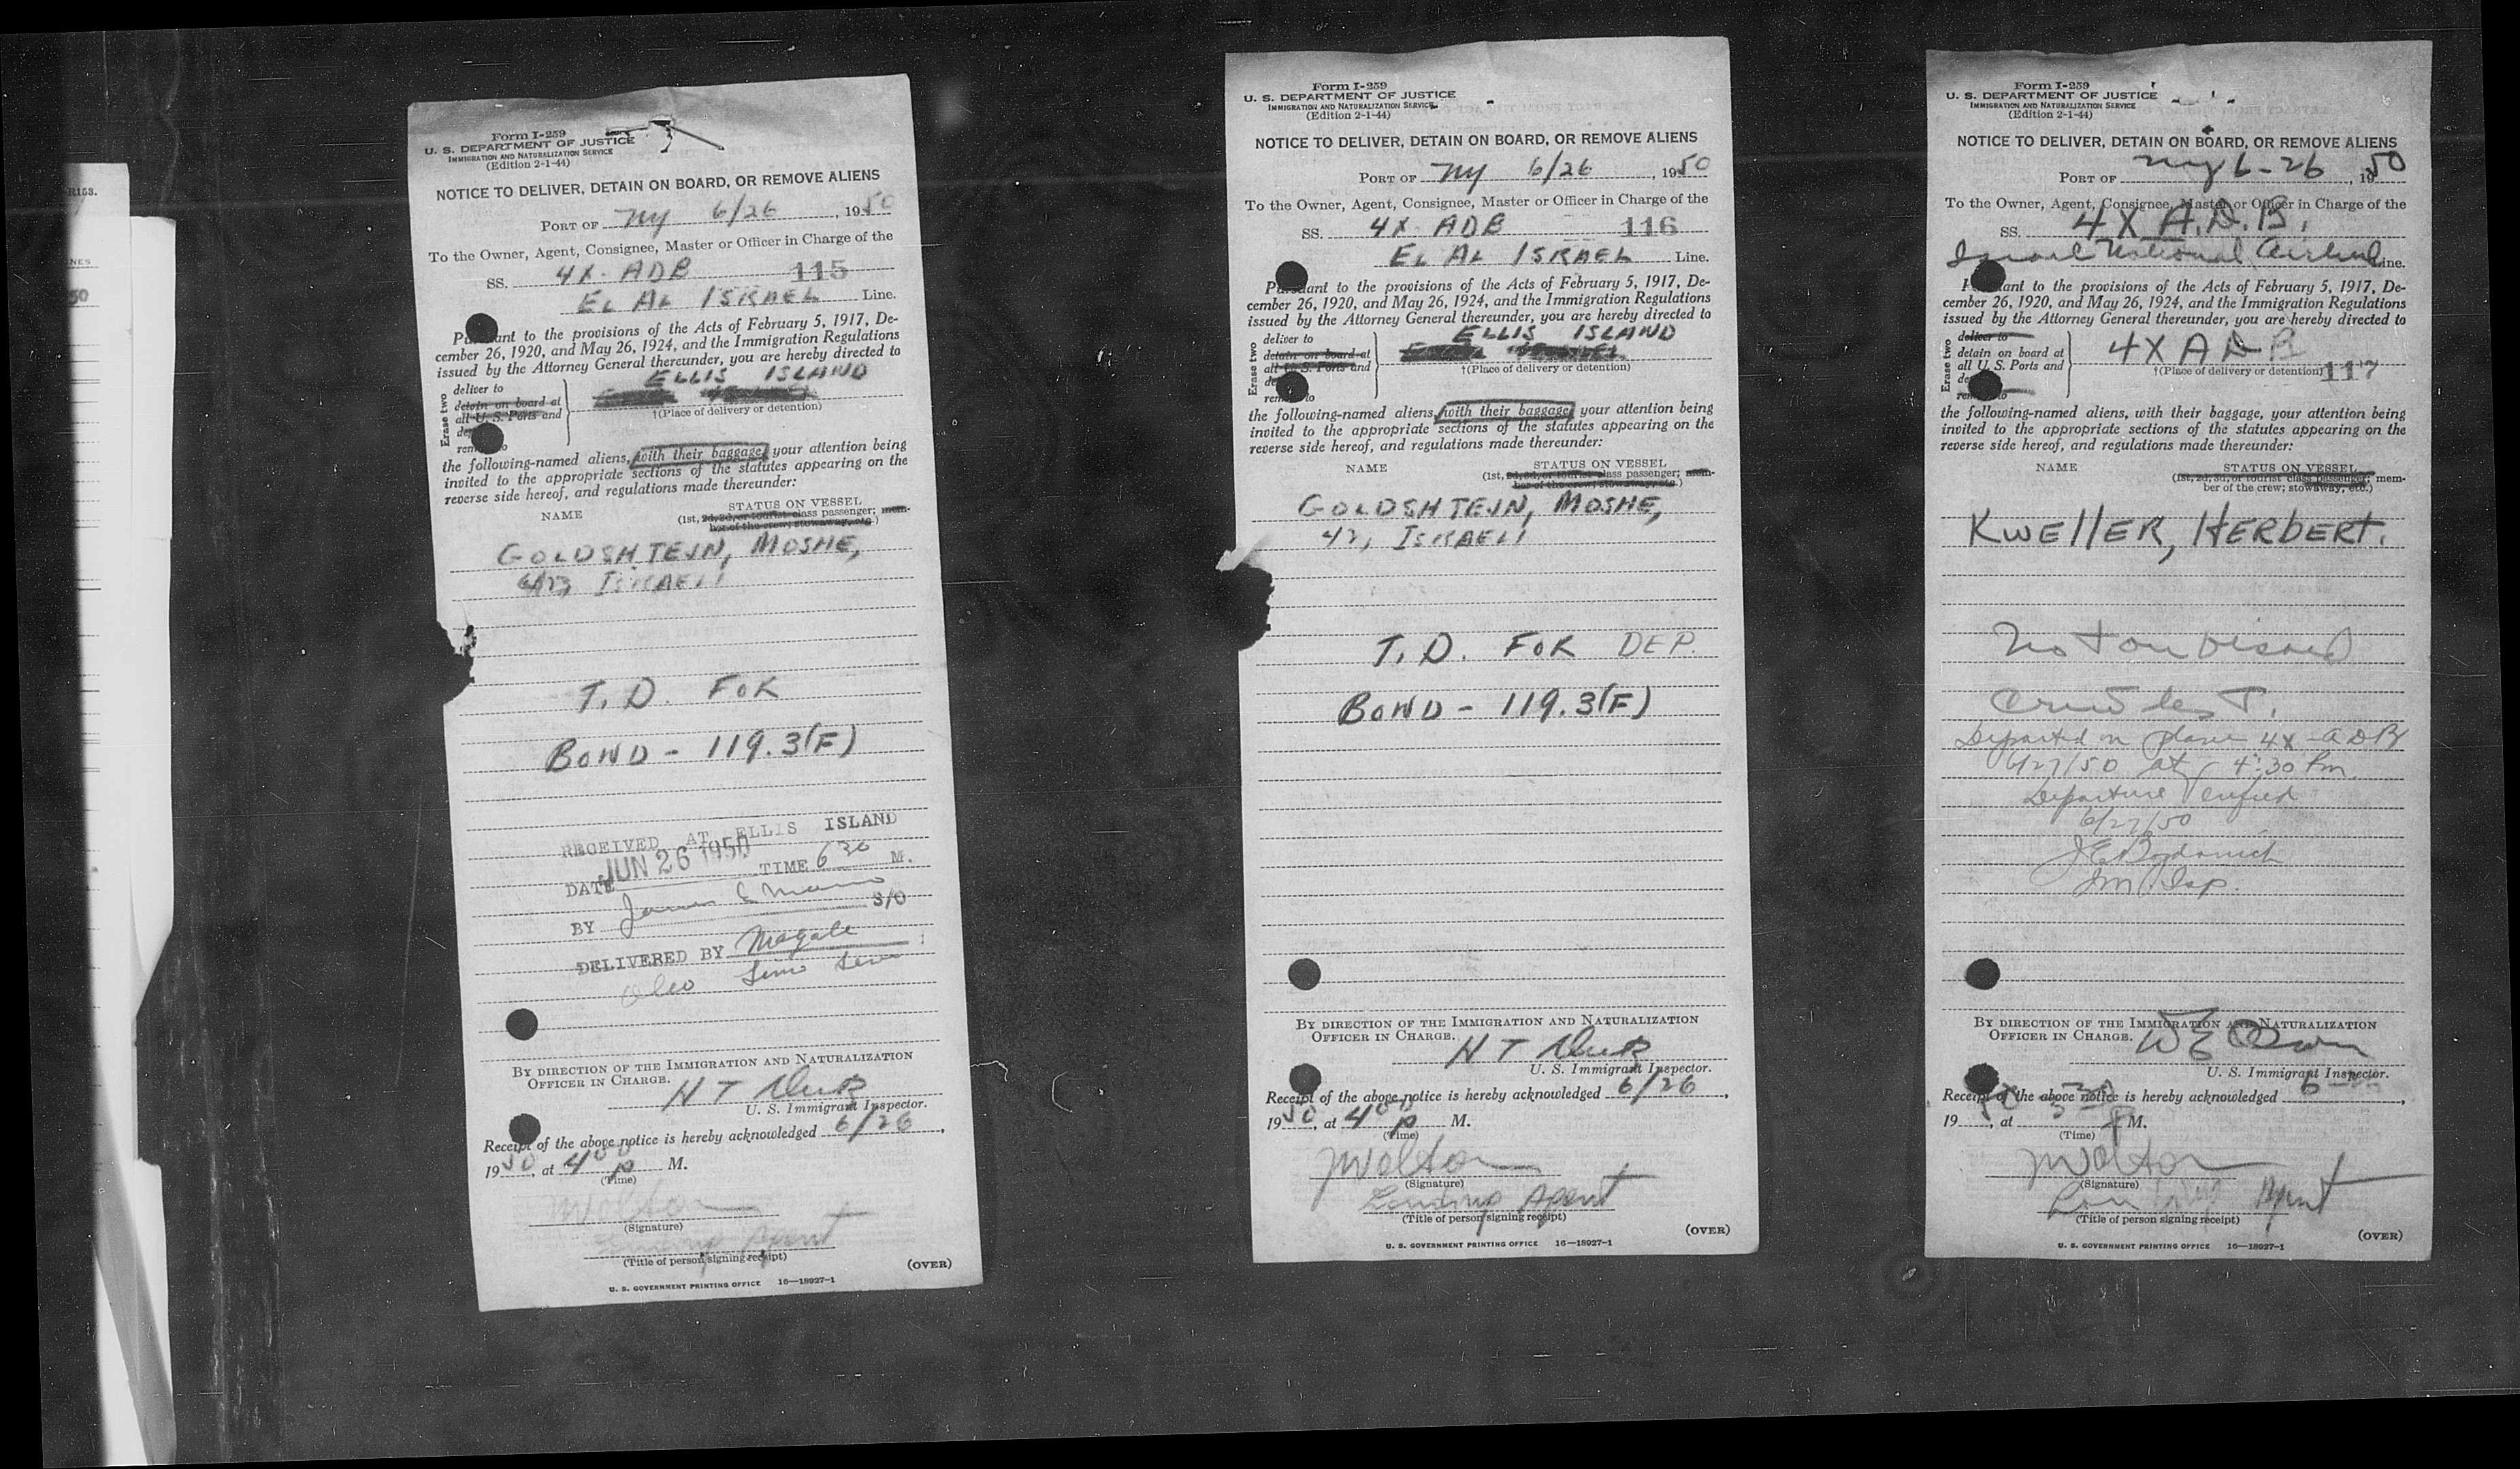 R153.
NES
50
Form I-259
U. S. DEPARTMENT OF JUSTICE
IMMIGRATION AND NATURALIZATION SERVICE
(Edition 2-1-44)
NOTICE TO DELIVER, DETAIN ON BOARD, OR REMOVE ALIENS
PORT OF NY 6/26, 1950
To the Owner, Agent, Consignee, Master or Officer in Charge of the
SS. 4X-ADB 115
EL AL ISRAEL Line.
Pursuant to the provisions of the Acts of February 5, 1917, De-
cember 26, 1920, and May 26, 1924, and the Immigration Regulations
issued by the Attorney General thereunder, you are hereby directed to
Erase two
deliver to
detain on board at
all U. S. Ports and
remove to
ELLIS ISLAND
†(Place of delivery or detention)
the following-named aliens, with their baggage, your attention being
invited to the appropriate sections of the statutes appearing on the
reverse side hereof, and regulations made thereunder:
NAME
STATUS ON VESSEL
(1st, 2d, 3d, or tourist class passenger; mem-
ber of the crew; stowaway, etc.)
GOLDSHTEJN, MOSHE,
ISRAELI
T. D. FOR
BOND - 119.3(F)
RECEIVED AT ELLIS ISLAND
DATE JUN 26 1950 TIME 6 30 M.
BY James S/O
DELIVERED BY
BY DIRECTION OF THE IMMIGRATION AND NATURALIZATION
OFFICER IN CHARGE.
H T
U. S. Immigrant Inspector.
Receipt of the above notice is hereby acknowledged 6/26,
1950, at 4 00 P M.
(Time)
(Signature)
Landing Agent
(Title of person signing receipt)
(OVER)
U. S. GOVERNMENT PRINTING OFFICE 16—18927-1
Form I-259
U. S. DEPARTMENT OF JUSTICE
IMMIGRATION AND NATURALIZATION SERVICE
(Edition 2-1-44)
NOTICE TO DELIVER, DETAIN ON BOARD, OR REMOVE ALIENS
PORT OF NY 6/26, 1950
To the Owner, Agent, Consignee, Master or Officer in Charge of the
SS. 4X ADB 116
EL AL ISRAEL Line.
Pursuant to the provisions of the Acts of February 5, 1917, De-
cember 26, 1920, and May 26, 1924, and the Immigration Regulations
issued by the Attorney General thereunder, you are hereby directed to
Erase two
deliver to
detain on board at
all U. S. Ports and
remove to
ELLIS ISLAND
†(Place of delivery or detention)
the following-named aliens, with their baggage, your attention being
invited to the appropriate sections of the statutes appearing on the
reverse side hereof, and regulations made thereunder:
NAME
STATUS ON VESSEL
(1st, 2d, 3d, or tourist class passenger; mem-
ber of the crew; stowaway, etc.)
GOLDSHTEJN, MOSHE,
ISRAELI
T. D. FOR DEP.
BOND - 119.3(F)
BY DIRECTION OF THE IMMIGRATION AND NATURALIZATION
OFFICER IN CHARGE.
H T
U. S. Immigrant Inspector.
Receipt of the above notice is hereby acknowledged 6/26,
1950, at 4 00 P M.
(Time)
(Signature)
Landing Agent
(Title of person signing receipt)
(OVER)
U. S. GOVERNMENT PRINTING OFFICE 16—18927-1
Form I-259
U. S. DEPARTMENT OF JUSTICE
IMMIGRATION AND NATURALIZATION SERVICE
(Edition 2-1-44)
NOTICE TO DELIVER, DETAIN ON BOARD, OR REMOVE ALIENS
PORT OF NY 6-26, 1950
To the Owner, Agent, Consignee, Master or Officer in Charge of the
SS. 4X A.D.B.
Israel National Line.
Pursuant to the provisions of the Acts of February 5, 1917, De-
cember 26, 1920, and May 26, 1924, and the Immigration Regulations
issued by the Attorney General thereunder, you are hereby directed to
Erase two
deliver to
detain on board at
all U. S. Ports and
remove to
4X ADB
†(Place of delivery or detention) 117
the following-named aliens, with their baggage, your attention being
invited to the appropriate sections of the statutes appearing on the
reverse side hereof, and regulations made thereunder:
NAME
STATUS ON VESSEL
(1st, 2d, 3d, or tourist class passenger; mem-
ber of the crew; stowaway, etc.)
KWELLER, HERBERT.
Not on visaed
Crew list.
Departed on plane 4X-ADB
6/27/50 at 4:30 Pm.
Departure Verified
6/27/50
Im. Isp.
BY DIRECTION OF THE IMMIGRATION AND NATURALIZATION
OFFICER IN CHARGE.
U. S. Immigrant Inspector.
Receipt of the above notice is hereby acknowledged 6
1950, at P M.
(Time)
(Signature)
Landing Agent
(Title of person signing receipt)
(OVER)
U. S. GOVERNMENT PRINTING OFFICE 16—18927-1